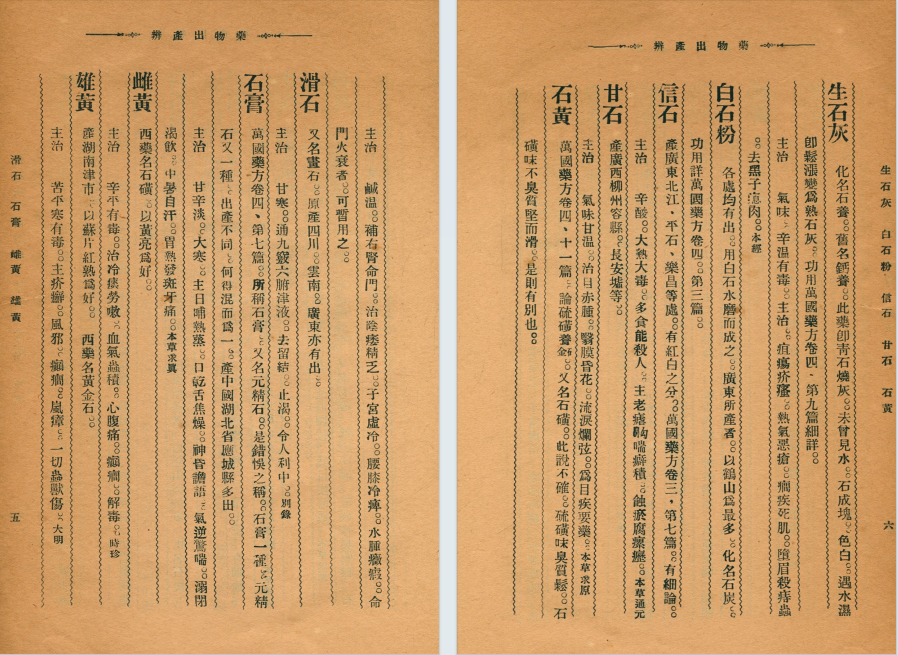 藥物出產辨
主治 鹹溫。補右腎命門。治陰痿精乏。子宮虛冷。腰膝冷痺。水腫癥瘕。命
門火衰者。可暫用之。
滑石
又名畫石。原產四川。雲南。廣東亦有出。
主治 甘寒。通九竅六腑津液。去留結。止渴。令人利中。別錄
石膏
萬國藥方卷四、第七篇。所稱石膏。又名元精石。是錯悞之稱。石膏一種。元精
石又一種。出產不同。何得混而爲一。產中國湖北省應城縣多出。
主治 甘辛淡。大寒。主日晡熱蒸。口乾舌焦燥。神昏譫語。氣逆驚喘。溺閉
渴飲。中暑自汗。胃熱發斑牙痛。本草求眞
雌黃
西藥名石磺。以黃亮爲好。
主治 辛平有毒。治冷痰勞嗽。血氣蟲積。心腹痛。癲癇。解毒。時珍
雄黃
產湖南津市。以蘇片紅熟爲好。 西藥名黃金石。
主治 苦平寒有毒。主疥癬。風邪。癲癇。嵐瘴。一切蟲獸傷。大明
滑石 石膏 雌黃 雄黃
五
藥物出產辨
生石灰
化名石養。舊名鈣養。此藥卽靑石燒灰。未曾見水。石成塊。色白。遇水濕
卽鬆漲變爲熟石灰。功用萬國藥方卷四、第九篇細詳。
主治 氣味。辛溫有毒。主治。疽瘍疥瘙。熱氣惡瘡。癇疾死肌。墮眉殺痔蟲
。去黑子息肉。本經
白石粉
各處均有出。用白石水磨而成之。廣東所產者。以鶴山爲最多。化名石炭。
功用詳萬國藥方卷四。第三篇。
信石
產廣東北江、平石、樂昌等處。有紅白之分。萬國藥方卷三、第七篇。有細論。
主治 辛酸。大熱大毒。多食能殺人。主老瘧齁喘癖積。蝕瘀腐瘰癧。本草通元
甘石
產廣西柳州容縣。長安墟等。
主治 氣味甘溫。治目赤腫。翳膜昏花。流淚爛弦。爲目疾要藥。本草求原
石黃
萬國藥方卷四、十一篇。論硫磺養金。又名石磺。此說不確。硫磺味臭質鬆。石
磺味不臭質堅而滑。是則有別也。
生石灰 白石粉 信石 甘石 石黃
六